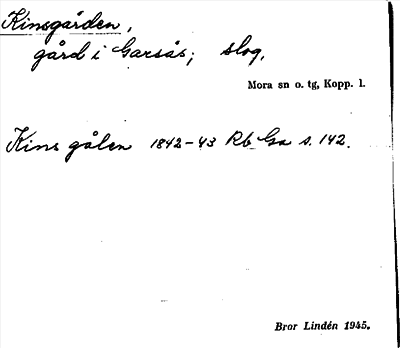 Kinsgården,
gård i Garsås; slog.
Mora sn o. tg, Kopp. l.
Kins gålen 1842-43 Rb Ga s. 142.
Bror Lindén 1945.